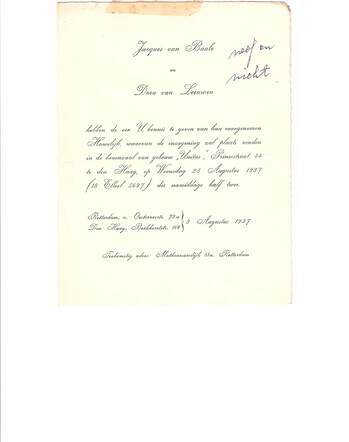 Jacques van Baale
neef en
nicht
en
Dora van Leeuwen
hebben de eer U kennis te geven van hun voorgenomen
Huwelijk, waarvan de inzegening zal plaats vinden
in de bovenzaal van gebouw „Unitas",
te den Haag, op Woensdag 25 Augustus 1937
(18 Elloel 5697) des namiddags half twee.
Rotterdam,
Den Haag,
Augustus 1937
Toekomstig adres: Mathenesserdijk Rotterdam